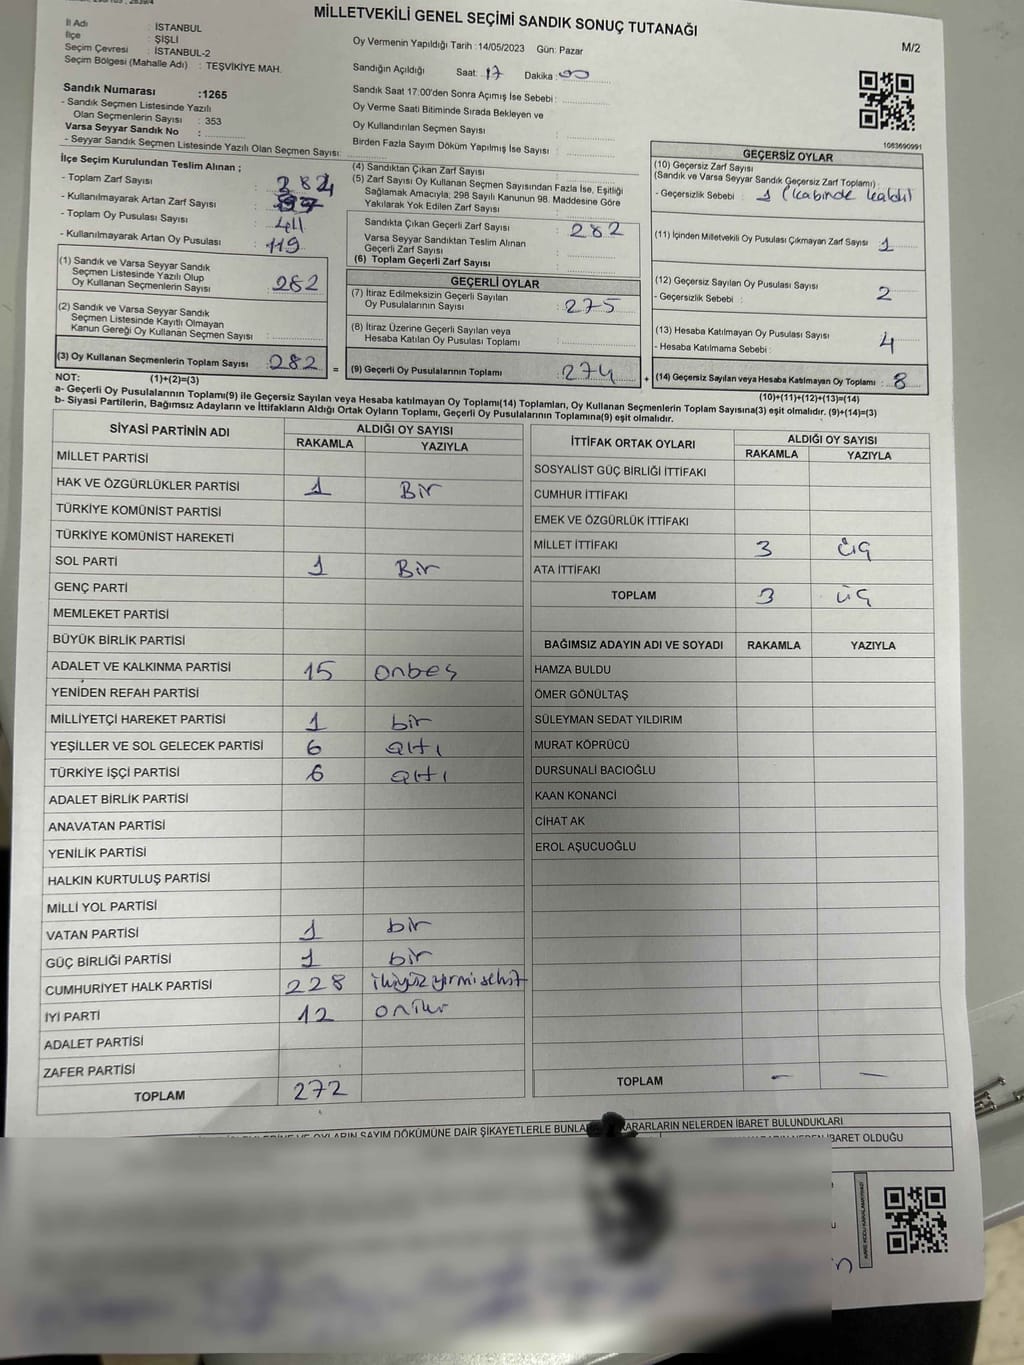 MİLLETVEKİLİ GENEL SEÇİMİ SANDIK SONUÇ TUTANAĞI
M/2
İl Adı : İSTANBUL
İlçe : ŞİŞLİ
Seçim Çevresi : İSTANBUL-2
Seçim Bölgesi (Mahalle Adı) : TEŞVİKİYE MAH.
Oy Vermenin Yapıldığı Tarih :14/05/2023 Gün: Pazar
Sandığın Açıldığı Saat: 17 Dakika: 00
Sandık Saat 17:00'den Sonra Açılmış İse Sebebi :
Oy Verme Saati Bitiminde Sırada Bekleyen ve
Oy Kullandırılan Seçmen Sayısı :
Birden Fazla Sayım Döküm Yapılmış İse Sayısı :
Sandık Numarası :1265
- Sandık Seçmen Listesinde Yazılı
Olan Seçmenlerin Sayısı : 353
Varsa Seyyar Sandık No :
- Seyyar Sandık Seçmen Listesinde Yazılı Olan Seçmen Sayısı:
1063690991
İlçe Seçim Kurulundan Teslim Alınan ;
- Toplam Zarf Sayısı :
- Kullanılmayarak Artan Zarf Sayısı :
- Toplam Oy Pusulası Sayısı : 411
- Kullanılmayarak Artan Oy Pusulası : 119
(1) Sandık ve Varsa Seyyar Sandık
Seçmen Listesinde Yazılı Olup
Oy Kullanan Seçmenlerin Sayısı : 282
(2) Sandık ve Varsa Seyyar Sandık
Seçmen Listesinde Kayıtlı Olmayan
Kanun Gereği Oy Kullanan Seçmen Sayısı :
(3) Oy Kullanan Seçmenlerin Toplam Sayısı : 282 =
(4) Sandıktan Çıkan Zarf Sayısı :
(5) Zarf Sayısı Oy Kullanan Seçmen Sayısından Fazla İse, Eşitliği
Sağlamak Amacıyla, 298 Sayılı Kanunun 98. Maddesine Göre
Yakılarak Yok Edilen Zarf Sayısı :
Sandıkta Çıkan Geçerli Zarf Sayısı : 282
Varsa Seyyar Sandıktan Teslim Alınan
Geçerli Zarf Sayısı :
(6) Toplam Geçerli Zarf Sayısı :
GEÇERLİ OYLAR
(7) İtiraz Edilmeksizin Geçerli Sayılan
Oy Pusulalarının Sayısı : 275
(8) İtiraz Üzerine Geçerli Sayılan veya
Hesaba Katılan Oy Pusulası Toplamı :
(9) Geçerli Oy Pusulalarının Toplamı : 274 +
GEÇERSİZ OYLAR
(10) Geçersiz Zarf Sayısı
(Sandık ve Varsa Seyyar Sandık Geçersiz Zarf Toplamı) :
- Geçersizlik Sebebi : 1 (kabinde kaldı)
(11) İçinden Milletvekili Oy Pusulası Çıkmayan Zarf Sayısı : 1
(12) Geçersiz Sayılan Oy Pusulası Sayısı : 2
- Geçersizlik Sebebi :
(13) Hesaba Katılmayan Oy Pusulası Sayısı : 4
- Hesaba Katılmama Sebebi :
(14) Geçersiz Sayılan veya Hesaba Katılmayan Oy Toplamı : 8
(10)+(11)+(12)+(13)=(14)
NOT: (1)+(2)=(3)
a- Geçerli Oy Pusulalarının Toplamı(9) ile Geçersiz Sayılan veya Hesaba katılmayan Oy Toplamı(14) Toplamları, Oy Kullanan Seçmenlerin Toplam Sayısına(3) eşit olmalıdır. (9)+(14)=(3)
b- Siyasi Partilerin, Bağımsız Adayların ve İttifakların Aldığı Ortak Oyların Toplamı, Geçerli Oy Pusulalarının Toplamına(9) eşit olmalıdır.
SİYASİ PARTİNİN ADI ALDIĞI OY SAYISI
RAKAMLA YAZIYLA
MİLLET PARTİSİ
HAK VE ÖZGÜRLÜKLER PARTİSİ 1 Bir
TÜRKİYE KOMÜNİST PARTİSİ
TÜRKİYE KOMÜNİST HAREKETİ
SOL PARTİ 1 Bir
GENÇ PARTİ
MEMLEKET PARTİSİ
BÜYÜK BİRLİK PARTİSİ
ADALET VE KALKINMA PARTİSİ 15 onbeş
YENİDEN REFAH PARTİSİ
MİLLİYETÇİ HAREKET PARTİSİ 1 bir
YEŞİLLER VE SOL GELECEK PARTİSİ 6 altı
TÜRKİYE İŞÇİ PARTİSİ 6 altı
ADALET BİRLİK PARTİSİ
ANAVATAN PARTİSİ
YENİLİK PARTİSİ
HALKIN KURTULUŞ PARTİSİ
MİLLİ YOL PARTİSİ
VATAN PARTİSİ 1 bir
GÜÇ BİRLİĞİ PARTİSİ 1 bir
CUMHURİYET HALK PARTİSİ 228 ikiyüz yirmi sekiz
İYİ PARTİ 12 oniki
ADALET PARTİSİ
ZAFER PARTİSİ
TOPLAM 272
İTTİFAK ORTAK OYLARI ALDIĞI OY SAYISI
RAKAMLA YAZIYLA
SOSYALİST GÜÇ BİRLİĞİ İTTİFAKI
CUMHUR İTTİFAKI
EMEK VE ÖZGÜRLÜK İTTİFAKI
MİLLET İTTİFAKI 3 üç
ATA İTTİFAKI
TOPLAM 3 üç
BAĞIMSIZ ADAYIN ADI VE SOYADI RAKAMLA YAZIYLA
HAMZA BULDU
ÖMER GÖNÜLTAŞ
SÜLEYMAN SEDAT YILDIRIM
MURAT KÖPRÜCÜ
DURSUNALİ BACIOĞLU
KAAN KONANCİ
CİHAT AK
EROL AŞUCUOĞLU
TOPLAM - -
OYLARIN SAYIM DÖKÜMÜNE DAİR ŞİKAYETLERLE BUNLA ARARLARIN NELERDEN İBARET BULUNDUKLARI
İBARET OLDUĞU